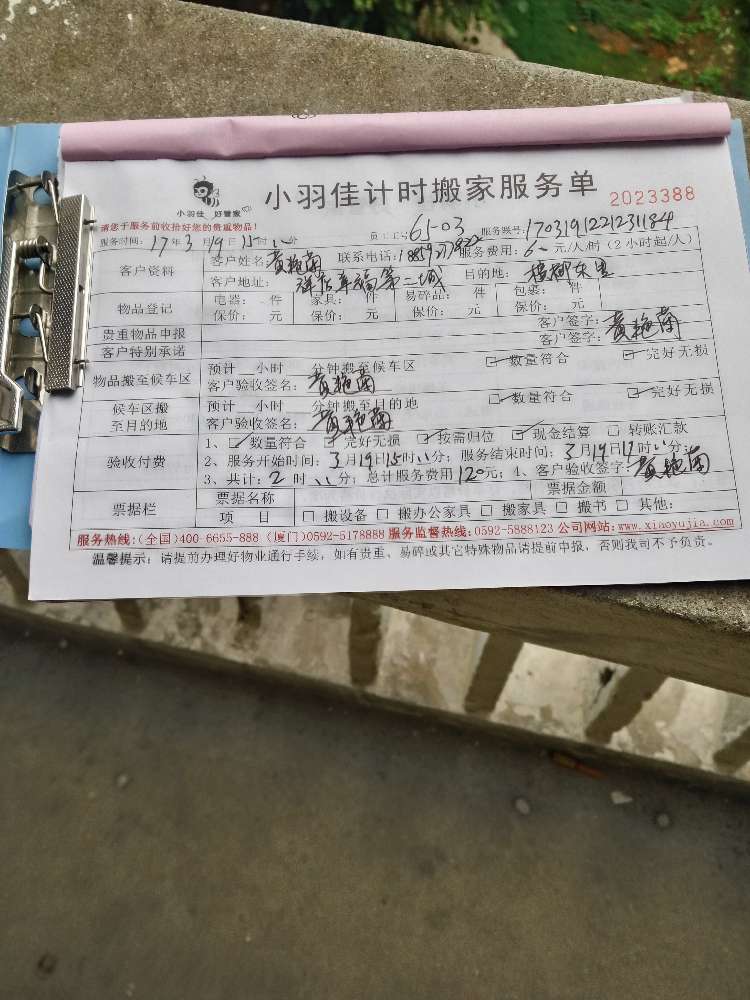 小羽佳 好管家
小羽佳计时搬家服务单 2023388
请您于服务前收拾好您的贵重物品!
服务时间: 17年3月19日15时 分 员工工号 65-03 服务账号: 1703191221231184
客户资料 客户姓名 黄艳菌 联系电话: 服务费用: 元/人/时(2小时起/人)
客户地址: 幸福第二城 目的地:
物品登记 电器: 件 家具: 件 易碎品: 件 包裹: 件
保价: 元 保价: 元 保价: 元 保价: 元
贵重物品申报 客户签字: 黄艳菌
客户特别承诺 客户签字:
物品搬至候车区 预计 小时 分钟搬至候车区 ☑数量符合 ☑完好无损
客户验收签名: 黄艳菌
候车区搬至目的地 预计 小时 分钟搬至目的地 ☑数量符合 ☑完好无损
客户验收签名: 黄艳菌
验收付费 1、☑数量符合 ☑完好无损 ☑按需归位 ☑现金结算 □转账汇款
2、服务开始时间: 3月19日15时 分; 服务结束时间: 3月19日17时 分;
3、共计: 2时 分; 总计服务费用120元; 4、客户验收签字: 黄艳菌
票据栏 票据名称 票据金额
项 目 □搬设备 □搬办公家具 □搬家具 □搬书 □其他:
服务热线:(全国)400-6655-888 (厦门)0592-5178888 服务监督热线:0592-5888123 公司网站: www.xiaoyujia.com
温馨提示: 请提前办理好物业通行手续, 如有贵重、易碎或其它特殊物品请提前申报, 否则我司不予负责。